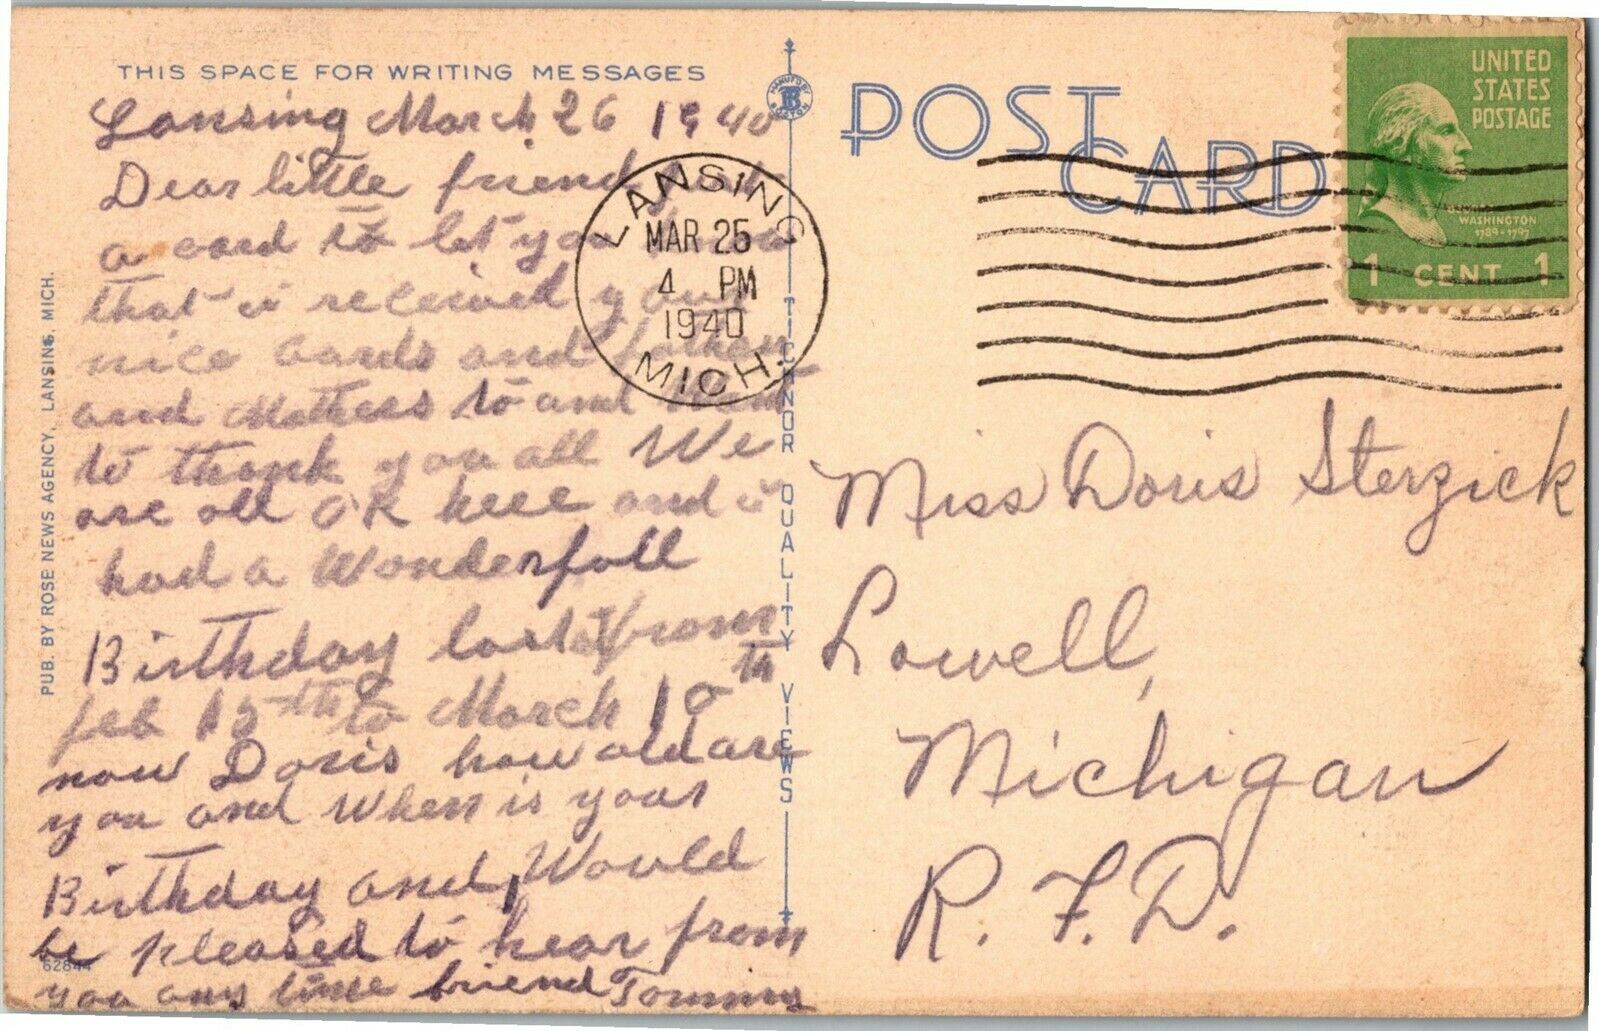 THIS SPACE FOR WRITING MESSAGES
Lansing March 26 1940
Dear little friend just
a card to let you know
that i received your
nice Cards and
and Mothers to and Want
to thank you all We
are all OK heee and i
had a Wonderfull
Birthday last from
feb 15th to March 10th
now Doris how old are
you and When is your
Birthday and, Would
be pleased to hear from
you any time friend Tommy
62844
PUB. BY ROSE NEWS AGENCY, LANSING, MICH.
TICHNOR QUALITY VIEWS
POST CARD
LANSING
MAR 25
4 PM
1940
MICH.
UNITED
STATES
POSTAGE
WASHINGTON
1789-1797
1 CENT 1
Miss Doris Sterzick
Lowell,
Michigan
R. F. D.